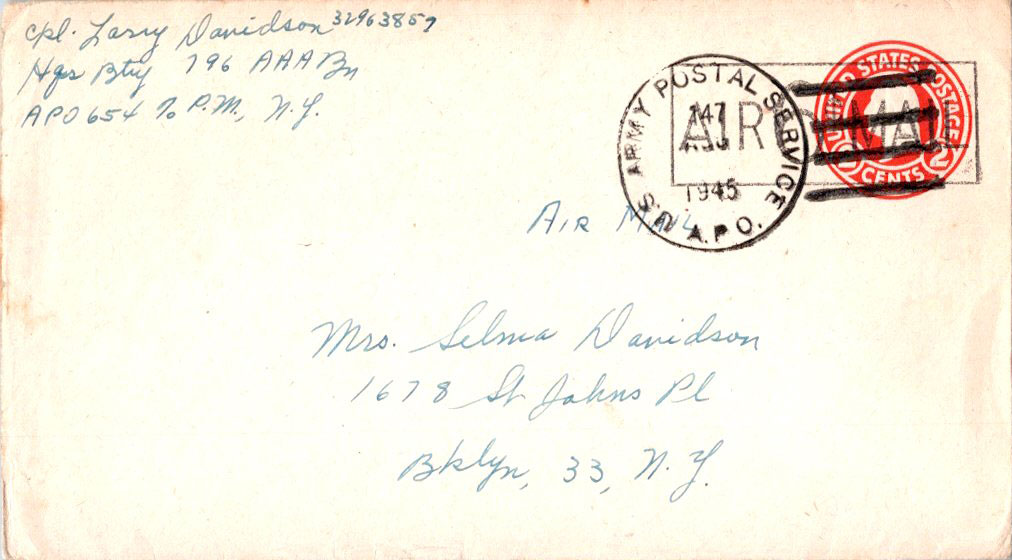 Cpl. Larry Davidson 32963857
Hqs Btry 796 AAA Bn
APO 654 % P.M., N.Y.
U.S. ARMY POSTAL SERVICE
A.P.O.
147
1945
AIR MAIL
UNITED STATES POSTAGE
2 CENTS 2
AIR MAIL
Mrs. Selma Davidson
1678 St Johns Pl
Bklyn, 33, N.Y.